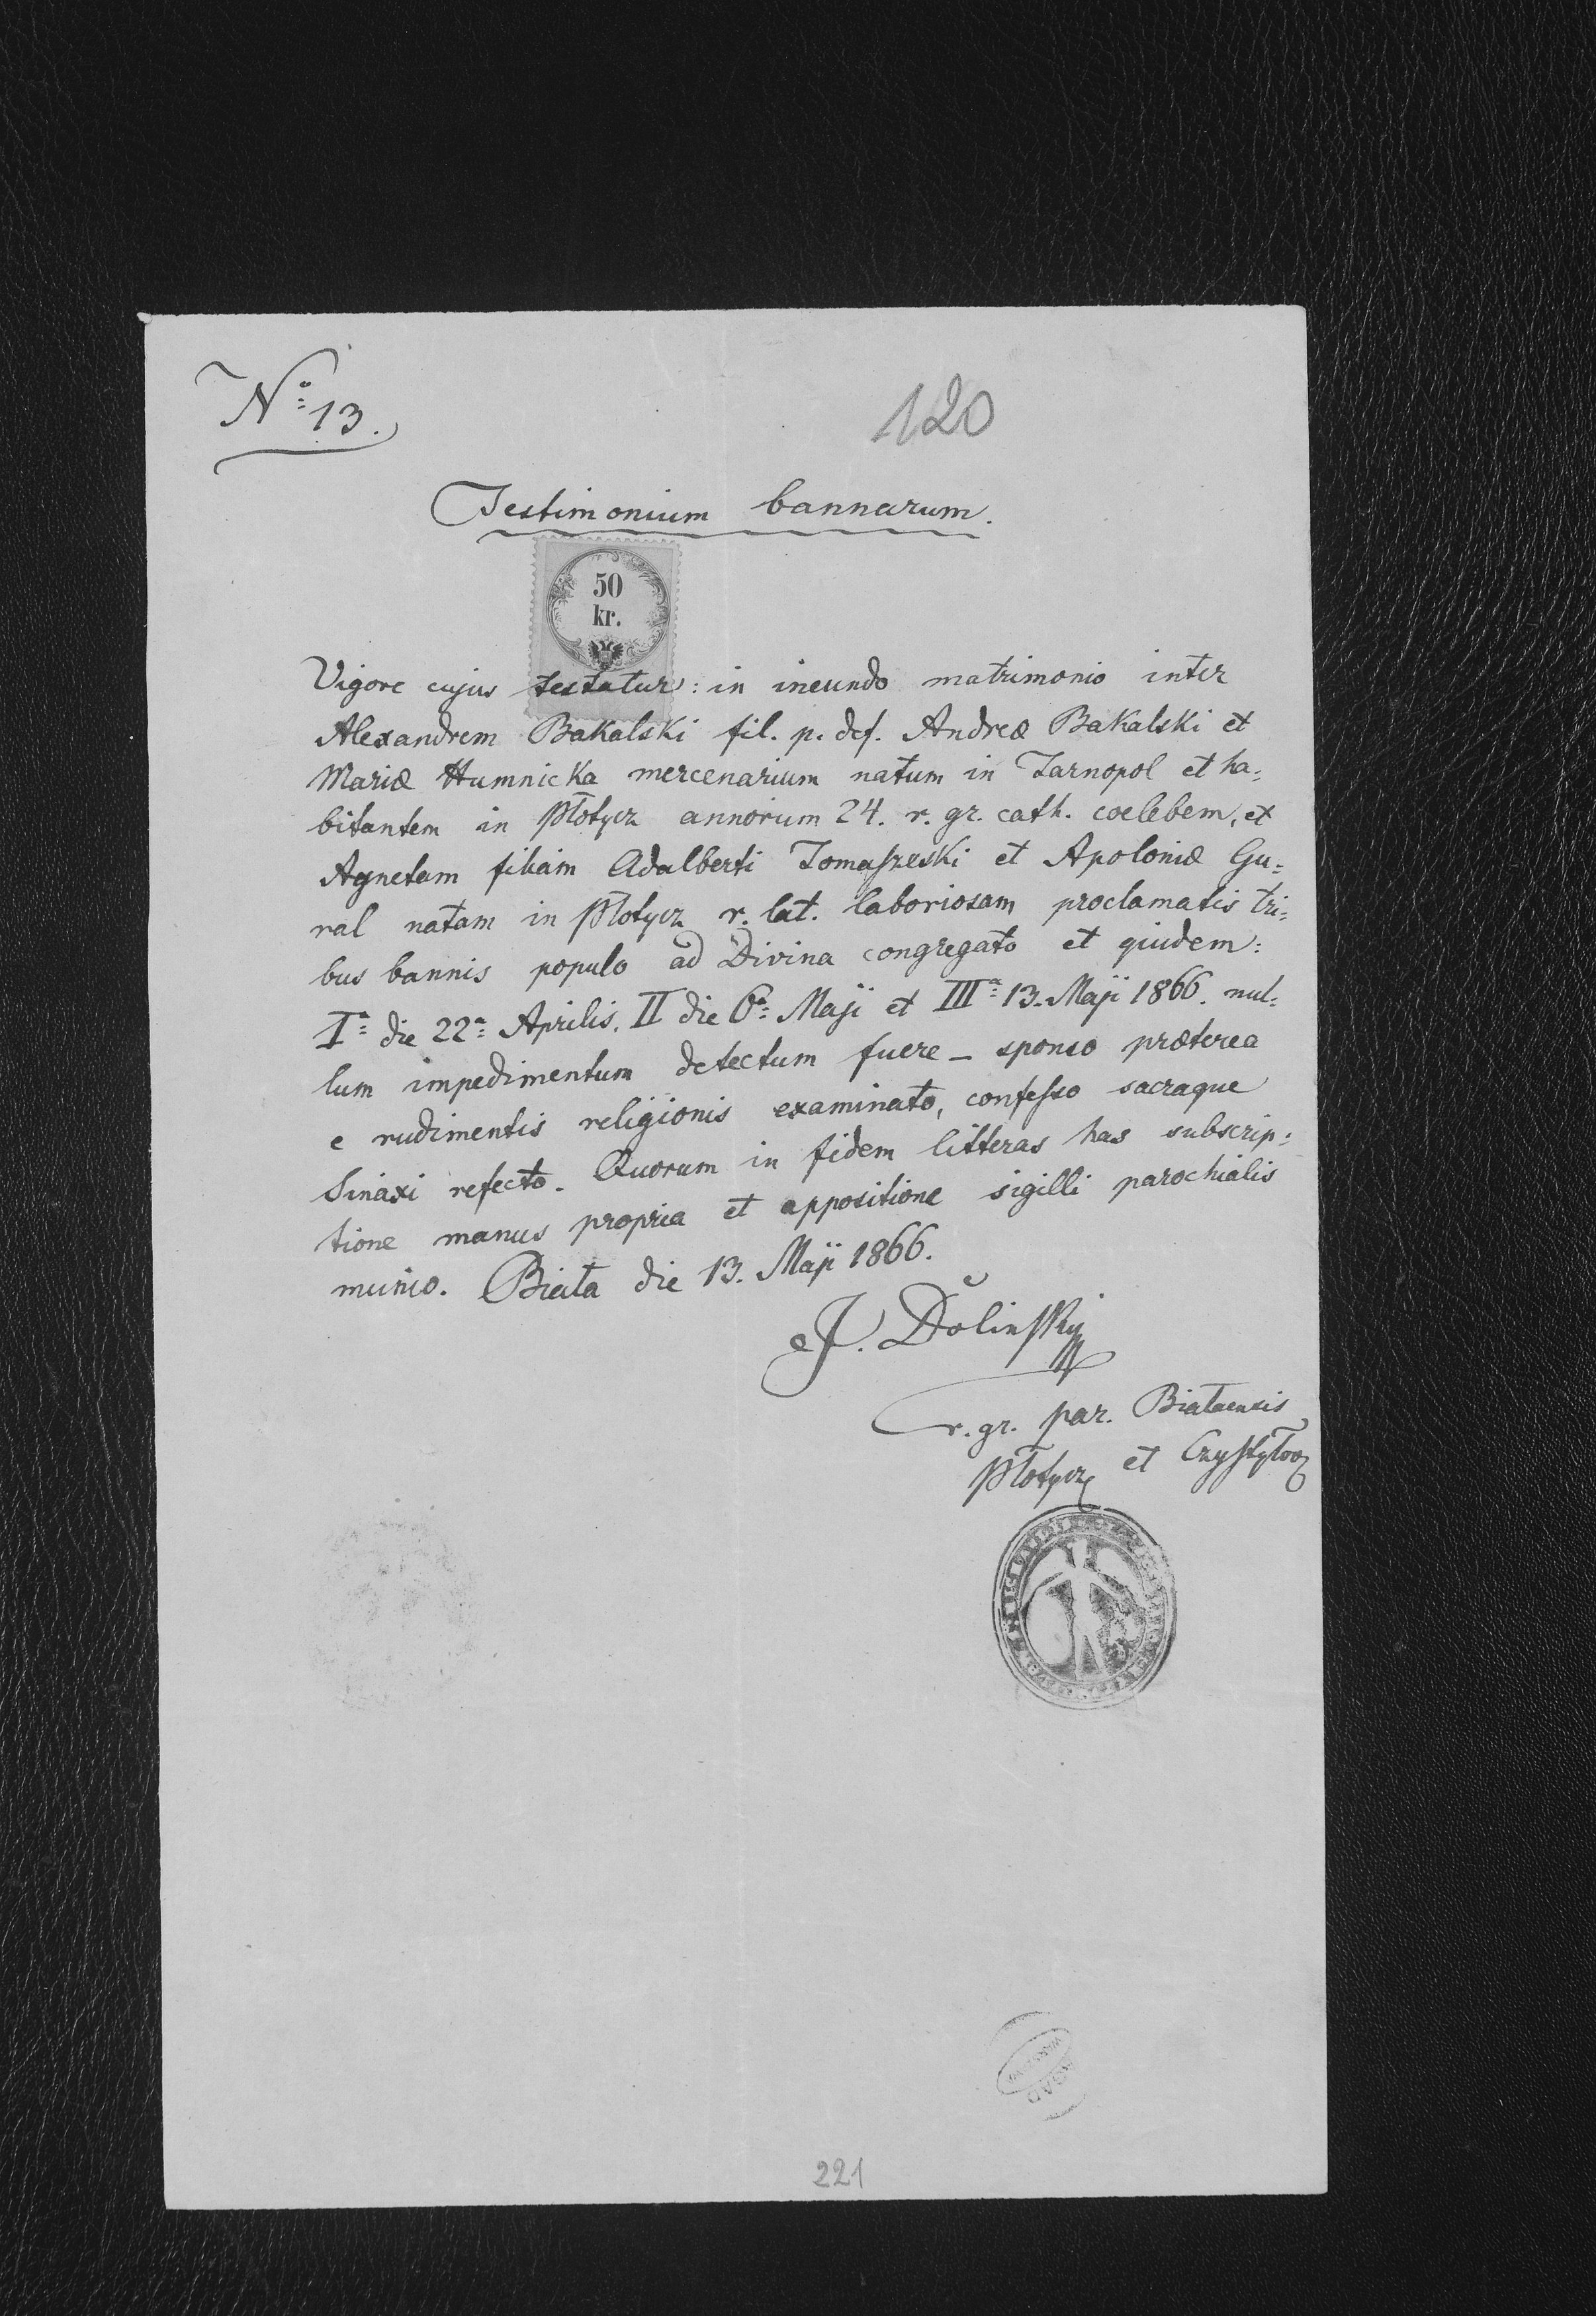 No 13.
120
Testimonium bannarum.
50
kr.
Vigore cujus testatur: in ineundo matrimonio inter
Alexandrem Bakalski fil. p. def. Andreæ Bakalski et
Mariæ Humnicka mercenarium natum in Tarnopol et ha=
bitantem in Płotycz annorum 24. r. gr. cath. coelebem, et
Agnetam filiam Adalberti Tomaszeski et Apoloniæ Gu=
ral natam in Płotycz r. lat. laboriosam proclamatis tri=
bus bannis populo ad Divina congregato et quidem:
Ia die 22a Aprilis, II die 6a Maji et IIIa 13. Maji 1866. nul=
lum impedimentum detectum fuere – sponso præterea
e rudimentis religionis examinato, confesso sacraque
Sinaxi refecto. Quorum in fidem litteras has subscrip=
tione manus propria et appositione sigilli parochialis
munio. Biała die 13. Maji 1866.
J. Dolinskij
r. gr. par. Białaensis
Płotycz et Czystyłow
AGAD
221